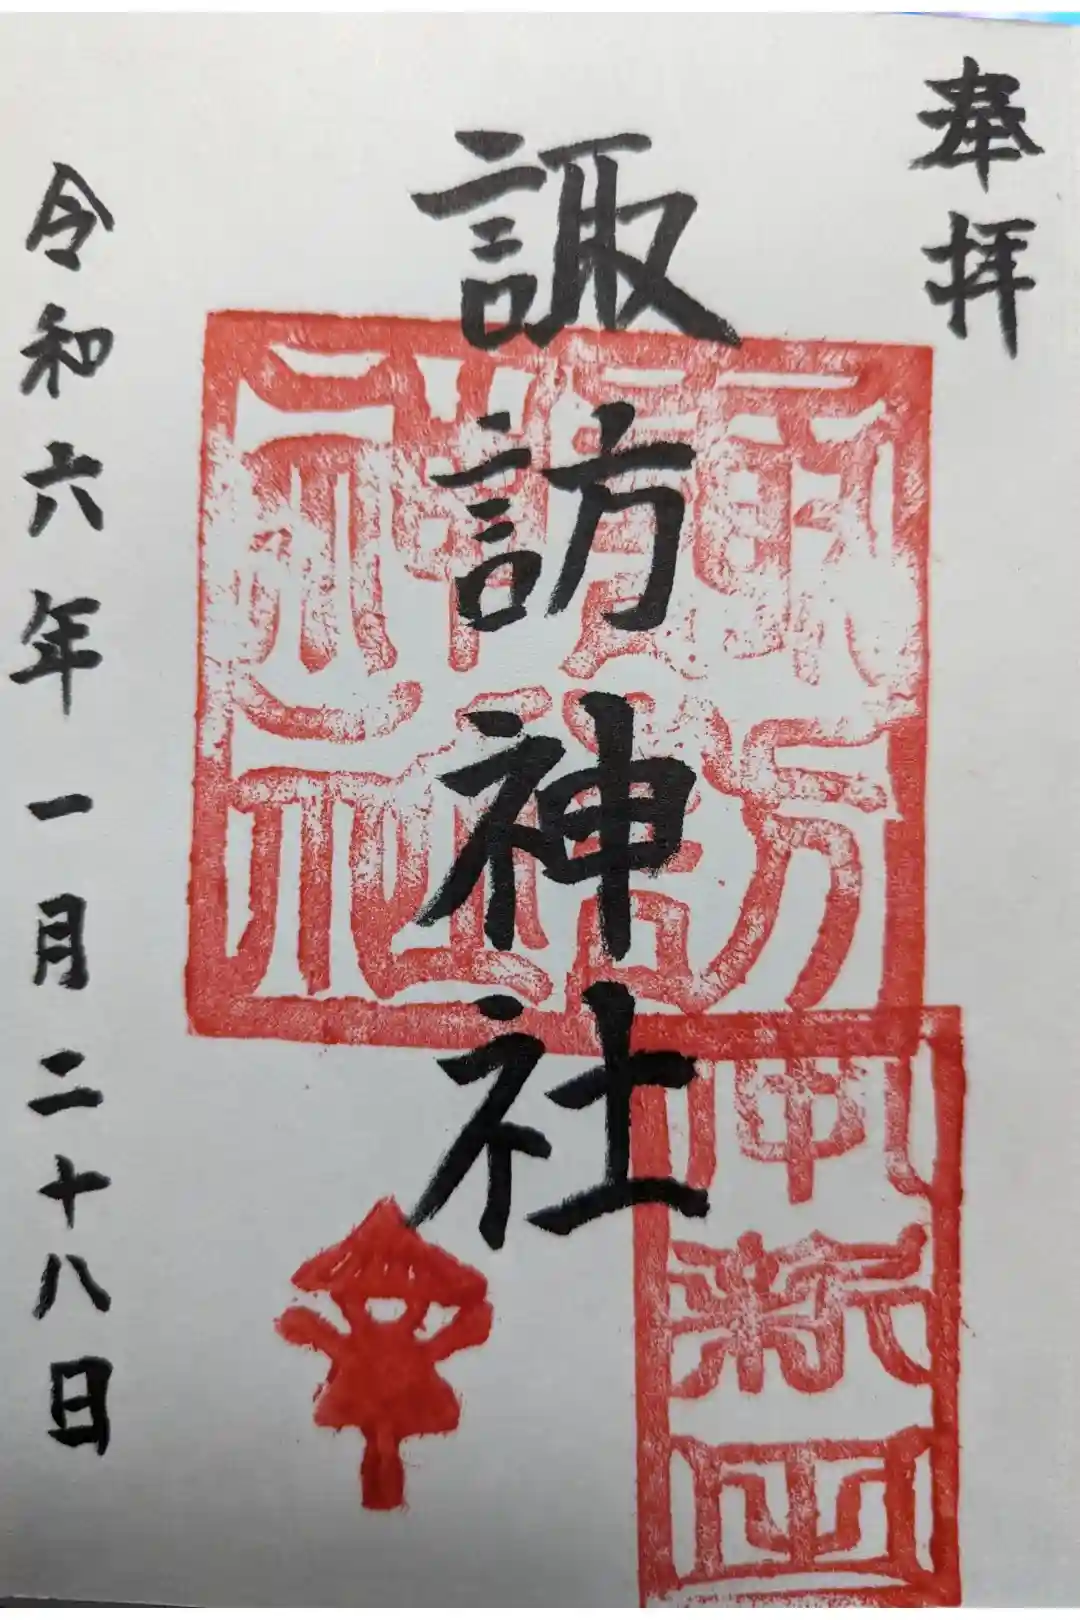 奉拝
諏訪神社
令和六年一月二十八日